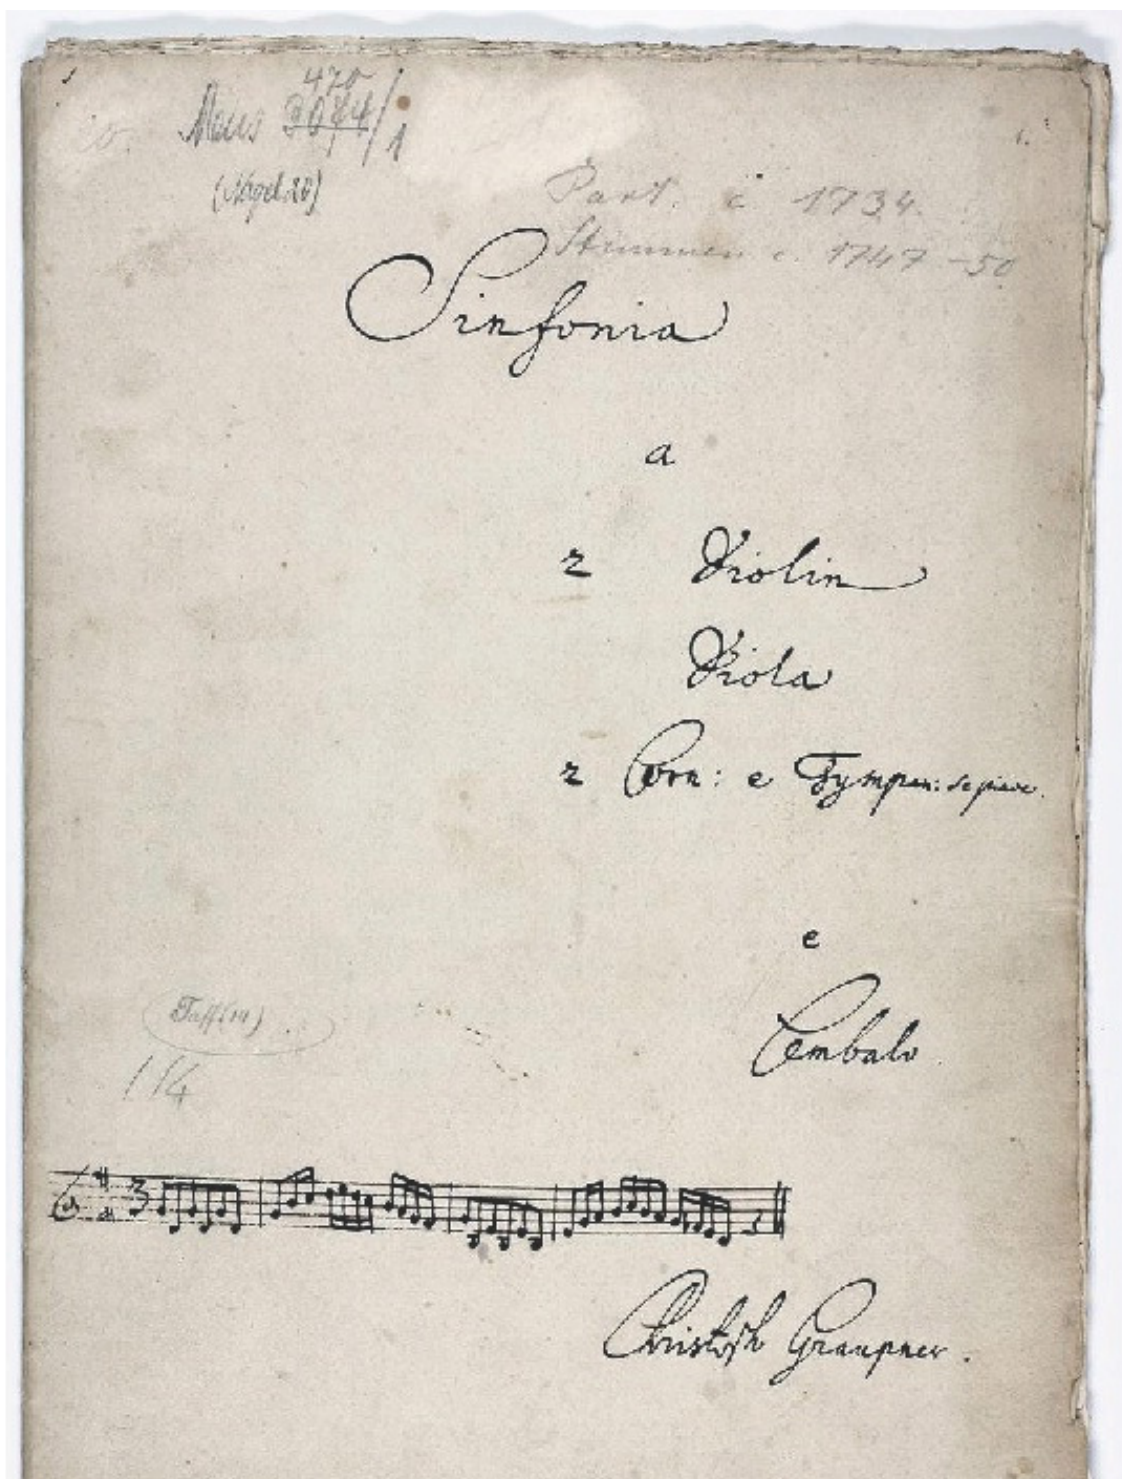 470
Mus 3044/1
(Nagel 20)
Part. c 1734.
Stimmen c. 1747-50
Sinfonia
a
2 Violin
Viola
2 Corn: e Tympan: se piace.
e
Cembalo
114
3
Christoph Graupner.